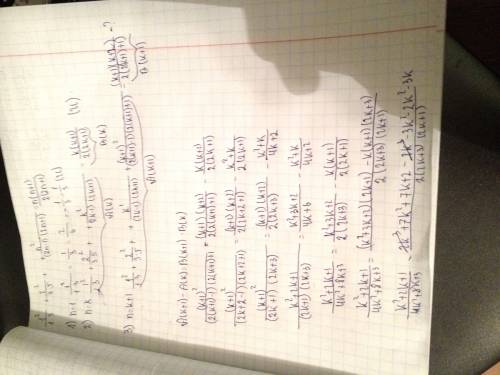 1²/1·3 + 2²/3·5 + ... + n²/(2n-1)(2n+1) = n(n+1)/2(2n+1)
1) n=1 1²/1·3 = 1/3
2) n=k 1²/1·3 + 2²/3·5 + ... + k²/(2k-1)(2k+1) = k(k+1)/2(2k+1) (U)
A(k) B(k)
3) n=k+1 1²/1·3 + 2²/3·5 + ... + k²/(2k-1)(2k+1) + (k+1)²/(2(k+1)-1)(2(k+1)+1) = (k+1)(k+2)/2(2(k+1)+1) - ?
A(k+1) B(k+1)
A(k+1) - A(k) = B(k+1) - B(k)
(k+1)²/(2(k+1)-1)(2(k+1)+1) = (k+1)(k+2)/2(2(k+1)+1) - k(k+1)/2(2k+1)
(k+1)²/(2k+2-1)(2k+2+1) = (k+1)(k+2)/2(2k+2+1) - k²+k/2(2k+1)
(k+1)²/(2k+1)(2k+3) = (k+1)(k+2)/2(2k+3) - k²+k/4k+2
k²+2k+1/(2k+1)(2k+3) = k²+3k+2/4k+6 - k²+k/4k+2
k²+2k+1/4k²+8k+3 = k²+3k+2/2(2k+3) - k(k+1)/2(2k+1)
k²+2k+1/4k²+8k+3 = (k²+3k+2)(2k+1) - k(k+1)(2k+3)/2(2k+3)(2k+1)
k²+2k+1/4k²+8k+3 = 2k³+7k²+7k+2-2k³-3k²-2k²-3k/2(2k+3)(2k+1)